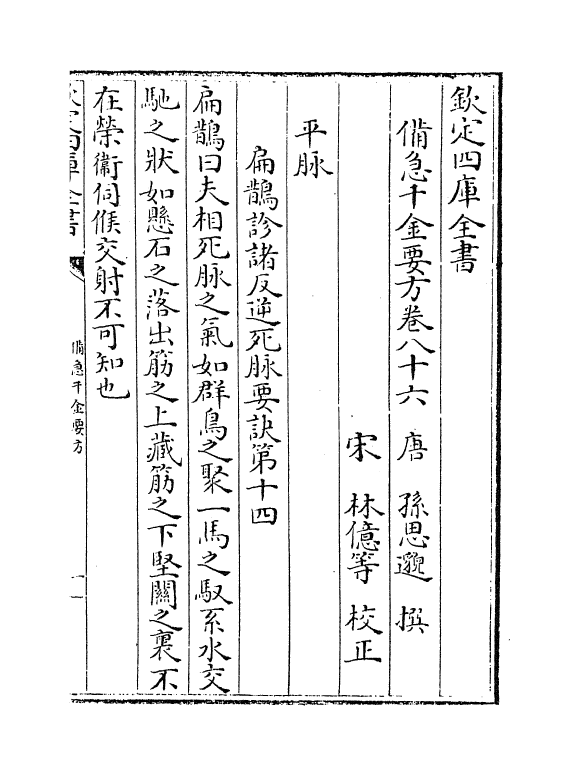 欽定四庫全書
備急千金要方卷八十六 唐 孫思邈 撰
宋 林億等 校正
平脉
扁鵲診諸反逆死脉要訣第十四
扁鵲曰夫相死脉之氣如群鳥之聚一馬之馭系水交
馳之狀如懸石之落出筋之上藏筋之下堅關之裏不
在榮衞伺候交射不可知也
欽定四庫全書
備急千金要方
一